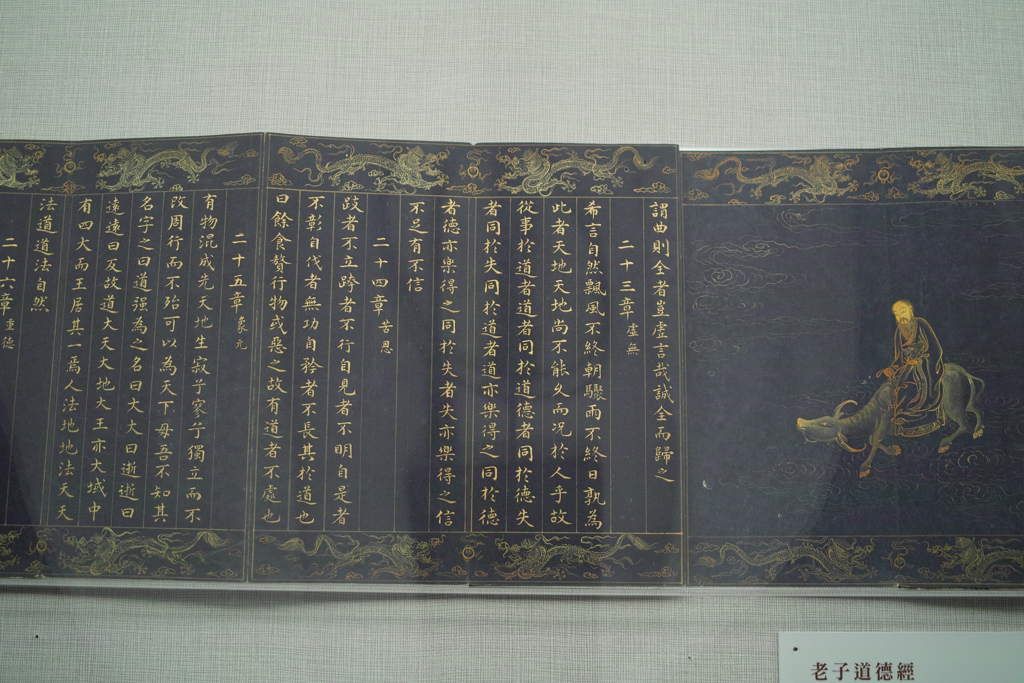 謂曲則全者豈虛言哉誠全而歸之
二十三章虛無
希言自然飄風不終朝驟雨不終日孰為
此者天地天地尚不能久而況於人乎故
從事於道者道者同於道德者同於德失
者同於失同於道者道亦樂得之同於德
者德亦樂得之同於失者失亦樂得之信
不足有不信
二十四章苦恩
跂者不立跨者不行自見者不明自是者
不彰自伐者無功自矜者不長其於道也
曰餘食贅行物或惡之故有道者不處也
二十五章象元
有物混成先天地生寂兮寥兮獨立而不
改周行而不殆可以為天下母吾不知其
名字之曰道强為之名曰大大曰逝逝曰
遠遠曰反故道大天大地大王亦大域中
有四大而王居其一焉人法地地法天天
法道道法自然
二十六章重德
老子道德經